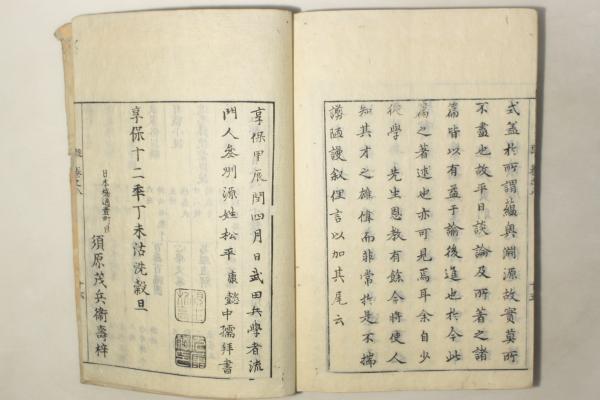 式蓋於所謂蘊奧淵源故實莫所
不盡也故平日談論及所著之諸
篇皆以有益于論後進也於今此
篇之著述也亦可見焉耳余自少
從學 先生恩教有餘今將使人
知其才之雄偉而非常於是不揣
謭陋謾叙俚言以加其尾云
享保甲辰閏四月日武田兵學者流
門人參列源姓松平康懿中孺拜書
享保十二季丁未沽洗穀旦
日本橋通壹町目
須原茂兵衞壽梓